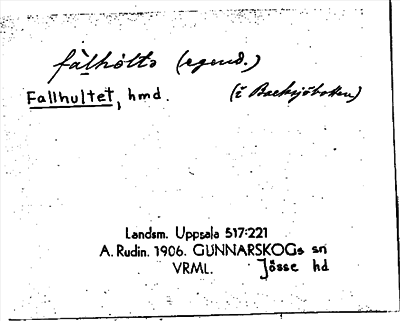 fàlhòltə (egend.)
Fallhultet, hmd. (i Backsjöbotten)
Landsm. Uppsala 517:221
A. Rudin. 1906. GUNNARSKOGs sn
VRML. Jösse hd